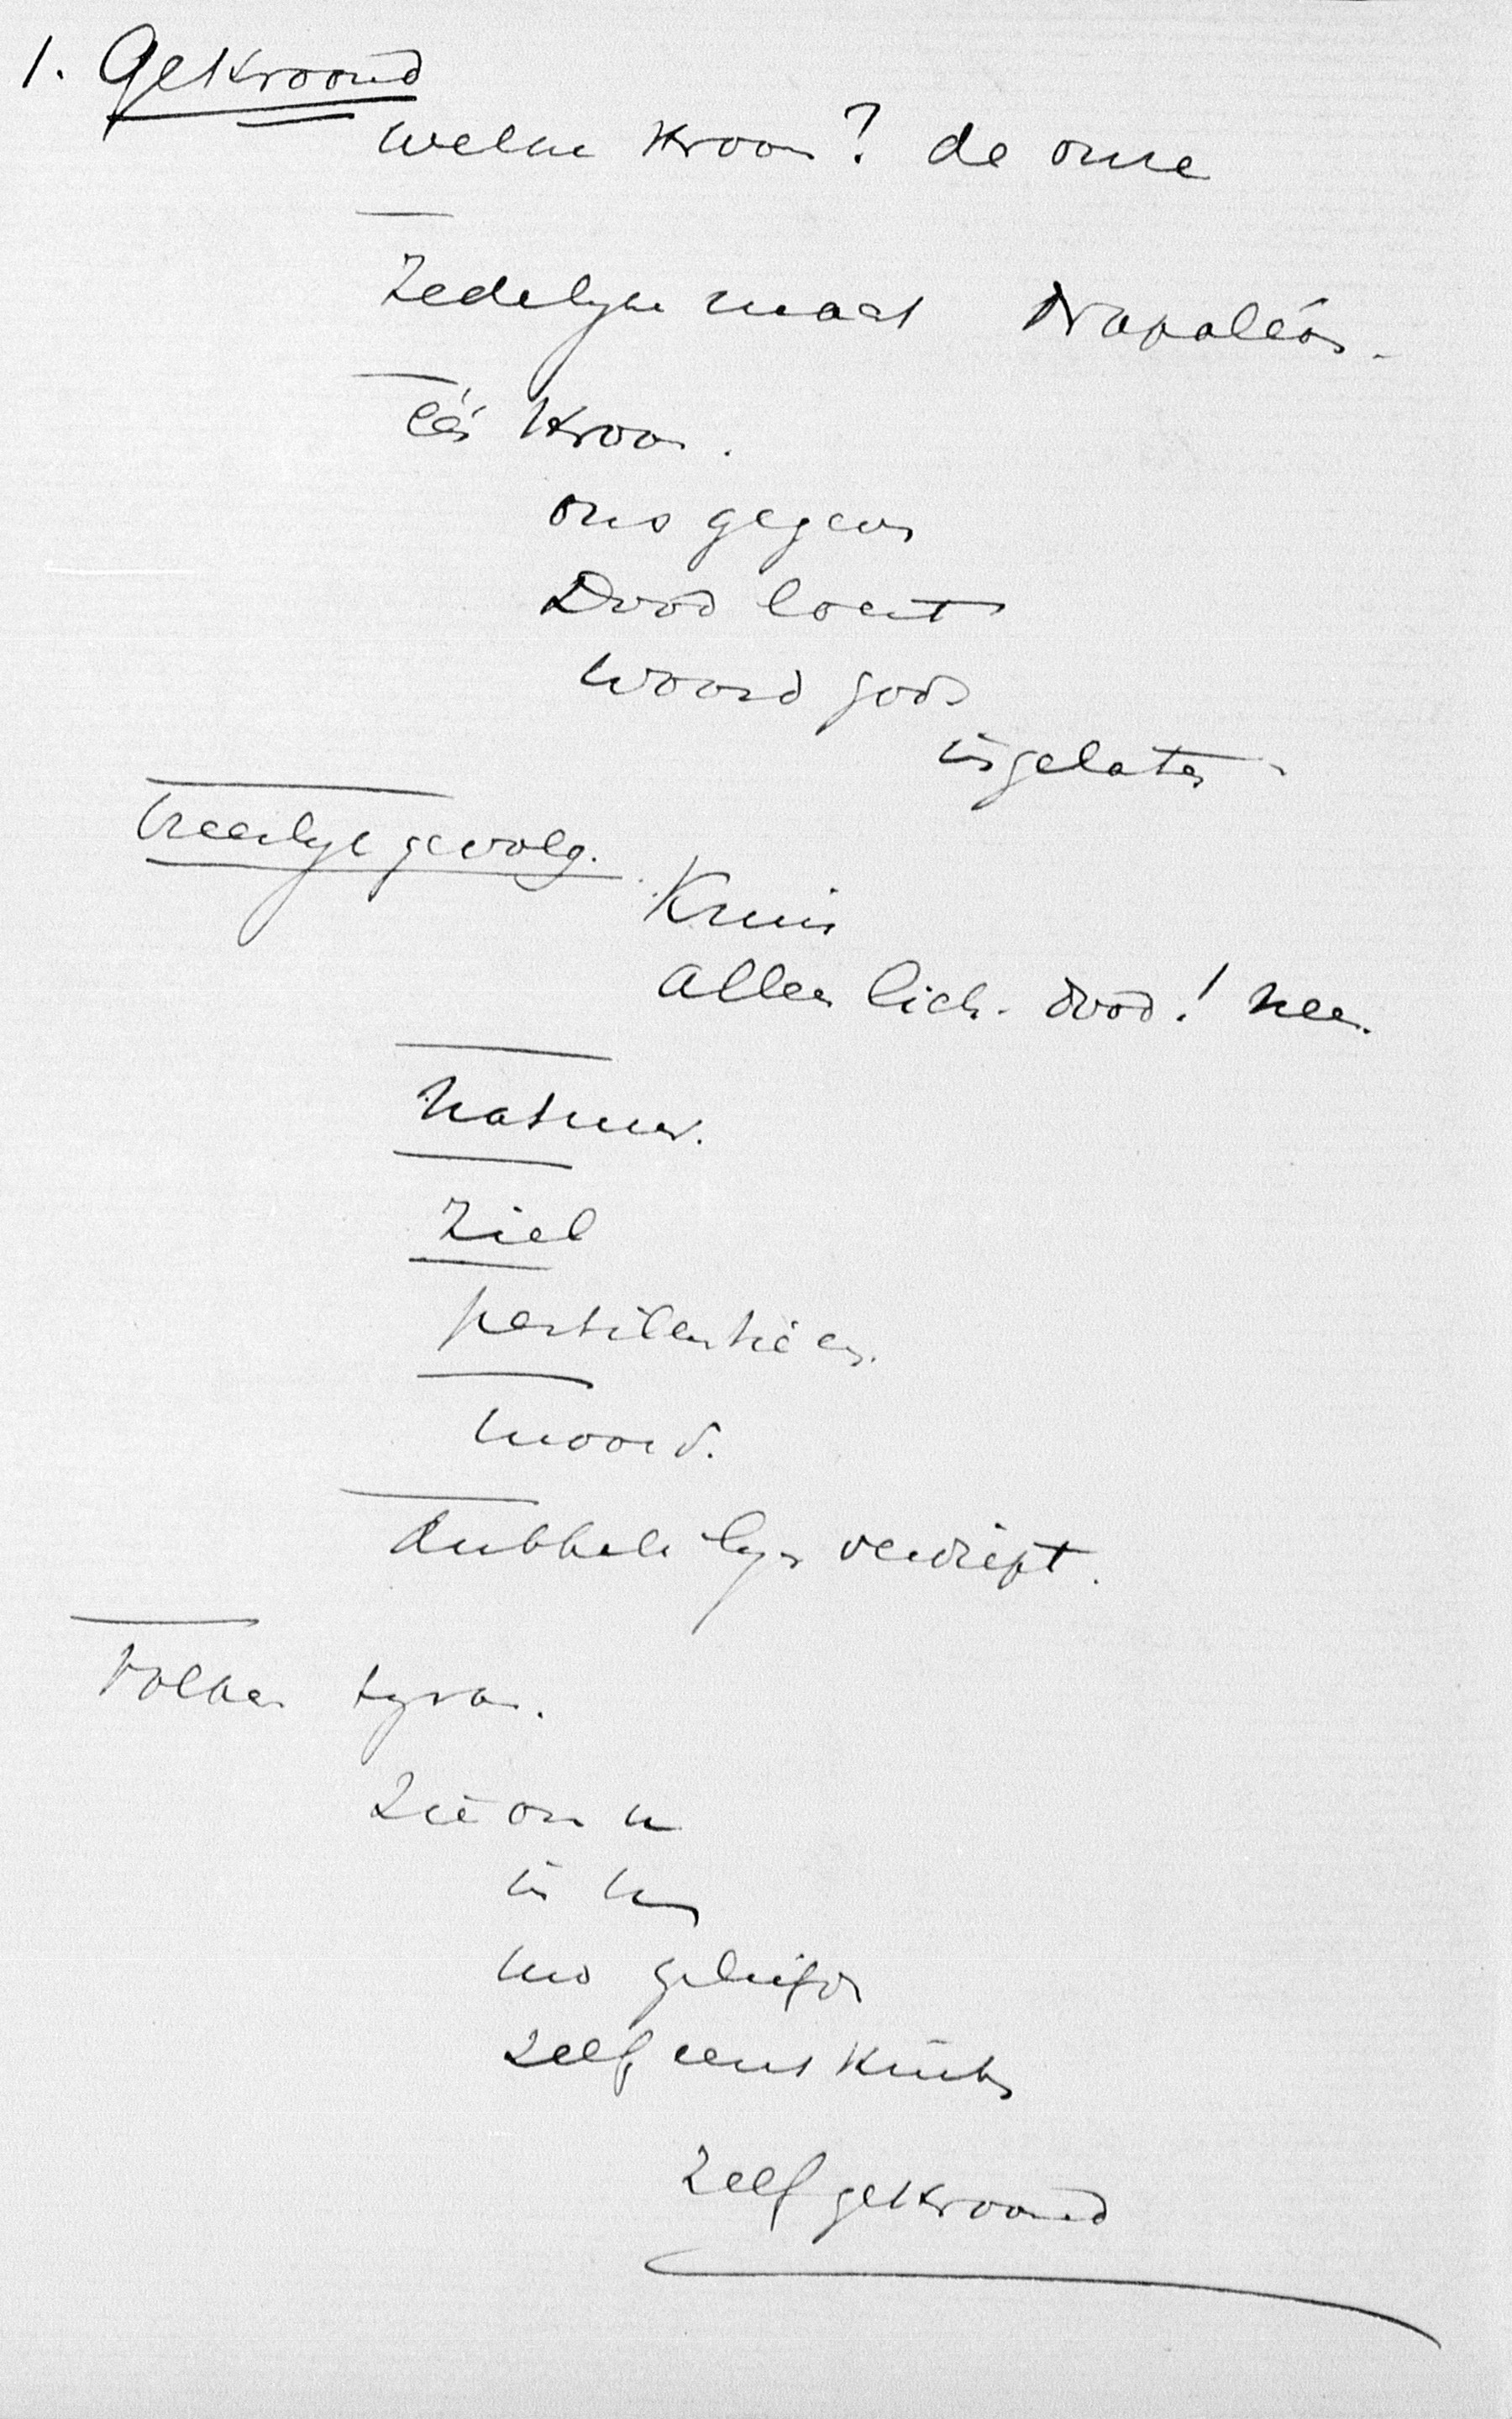 1. Gekroond
welke kroon? de onze
Zedelyke maat Napoléon.
één kroon.
ons gegeven
Dood loert
woord gods
ingelaten
Vreeslyk gevolg.
Kruis
alleen lich. dood! neen.
natuur.
Ziel
pestilentieën.
moord.
dubbele lyn verdiept.
Volken tyran.
Zie om u
in u
zelf eens
Zelf gekroond